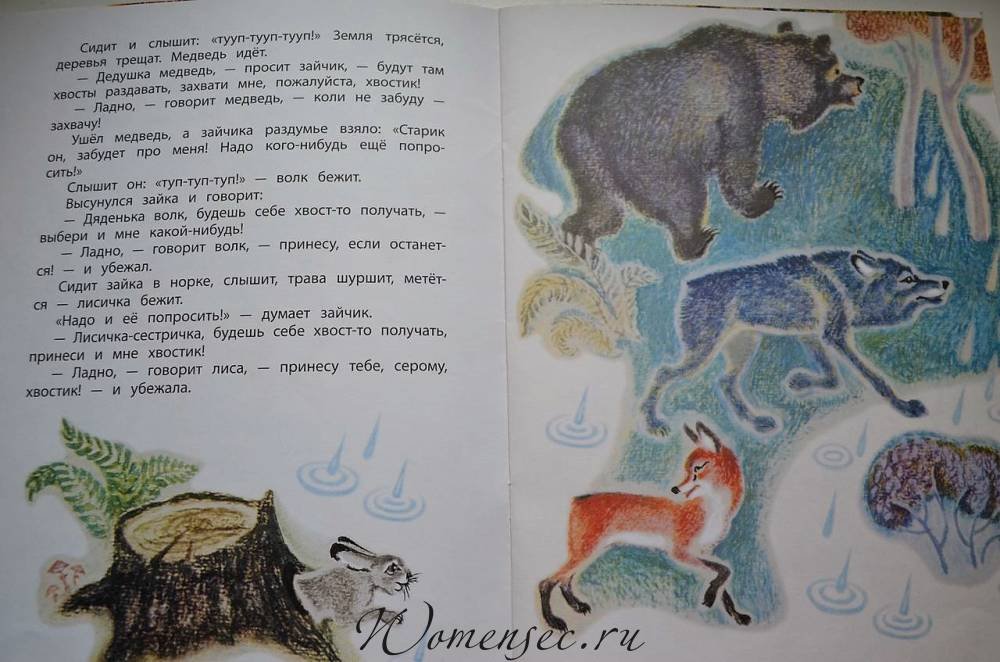 Сидит и слышит: «тууп-тууп-тууп!» Земля трясётся,
деревья трещат. Медведь идёт.
— Дедушка медведь, — просит зайчик, — будут там
хвосты раздавать, захвати мне, пожалуйста, хвостик!
— Ладно, — говорит медведь, — коли не забуду —
захвачу!
Ушёл медведь, а зайчика раздумье взяло: «Старик
он, забудет про меня! Надо кого-нибудь ещё попро-
сить!»
Слышит он: «туп-туп-туп!» — волк бежит.
Высунулся зайка и говорит:
— Дяденька волк, будешь себе хвост-то получать, —
выбери и мне какой-нибудь!
— Ладно, — говорит волк, — принесу, если останет-
ся! — и убежал.
Сидит зайка в норке, слышит, трава шуршит, метёт-
ся — лисичка бежит.
«Надо и её попросить!» — думает зайчик.
— Лисичка-сестричка, будешь себе хвост-то получать,
принеси и мне хвостик!
— Ладно, — говорит лиса, — принесу тебе, серому,
хвостик! — и убежала.
Womensec.ru